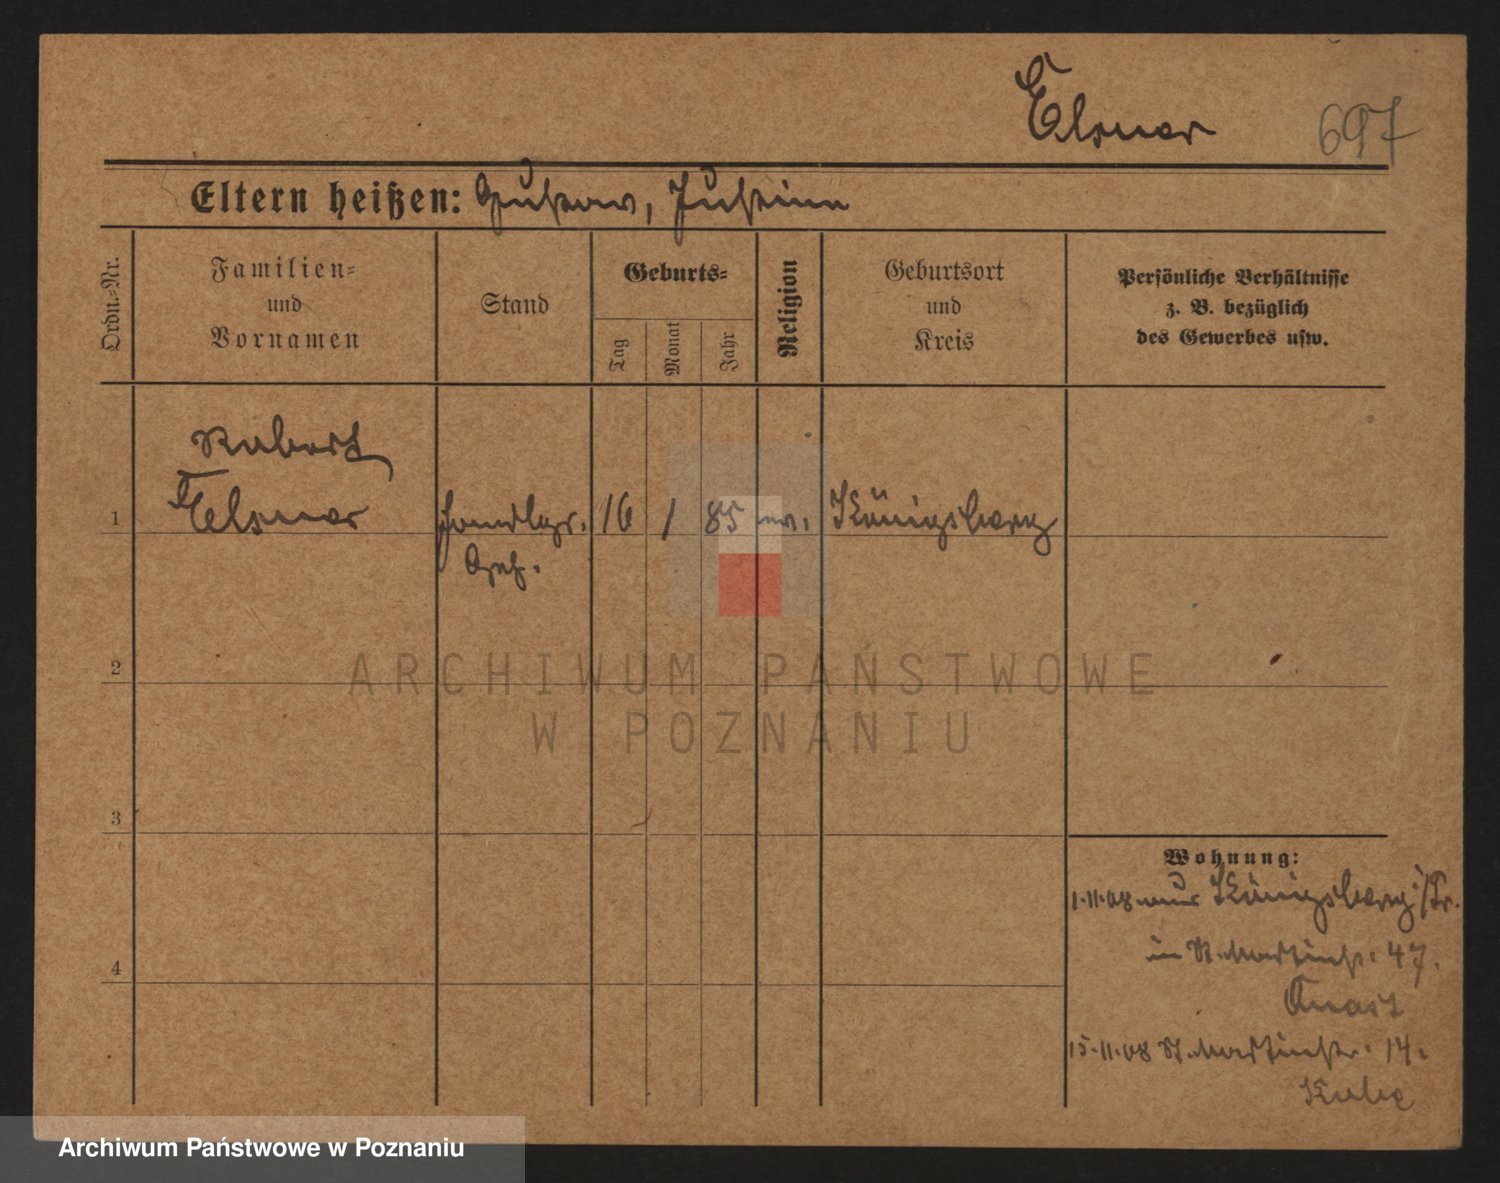 Elsner 697
Eltern heißen: Gustav, Justine
Ordn.-Nr.
Familien-
und
Vornamen
Stand
Geburts-
Tag
Monat
Jahr
Religion
Geburtsort
und
Kreis
Persönliche Verhältnisse
z. B. bezüglich
des Gewerbes usw.
Robert
1 Elsner Handlgs. 16 1 85 ev. Königsberg
Geh.
2
ARCHIWUM PAŃSTWOWE
W POZNANIU
3
Wohnung:
1.11.08 aus Königsberg i/Pr.
in St. Martinstr. 47.
4
Quast
15.11.08 St. Martinstr. 14.
Archiwum Państwowe w Poznaniu